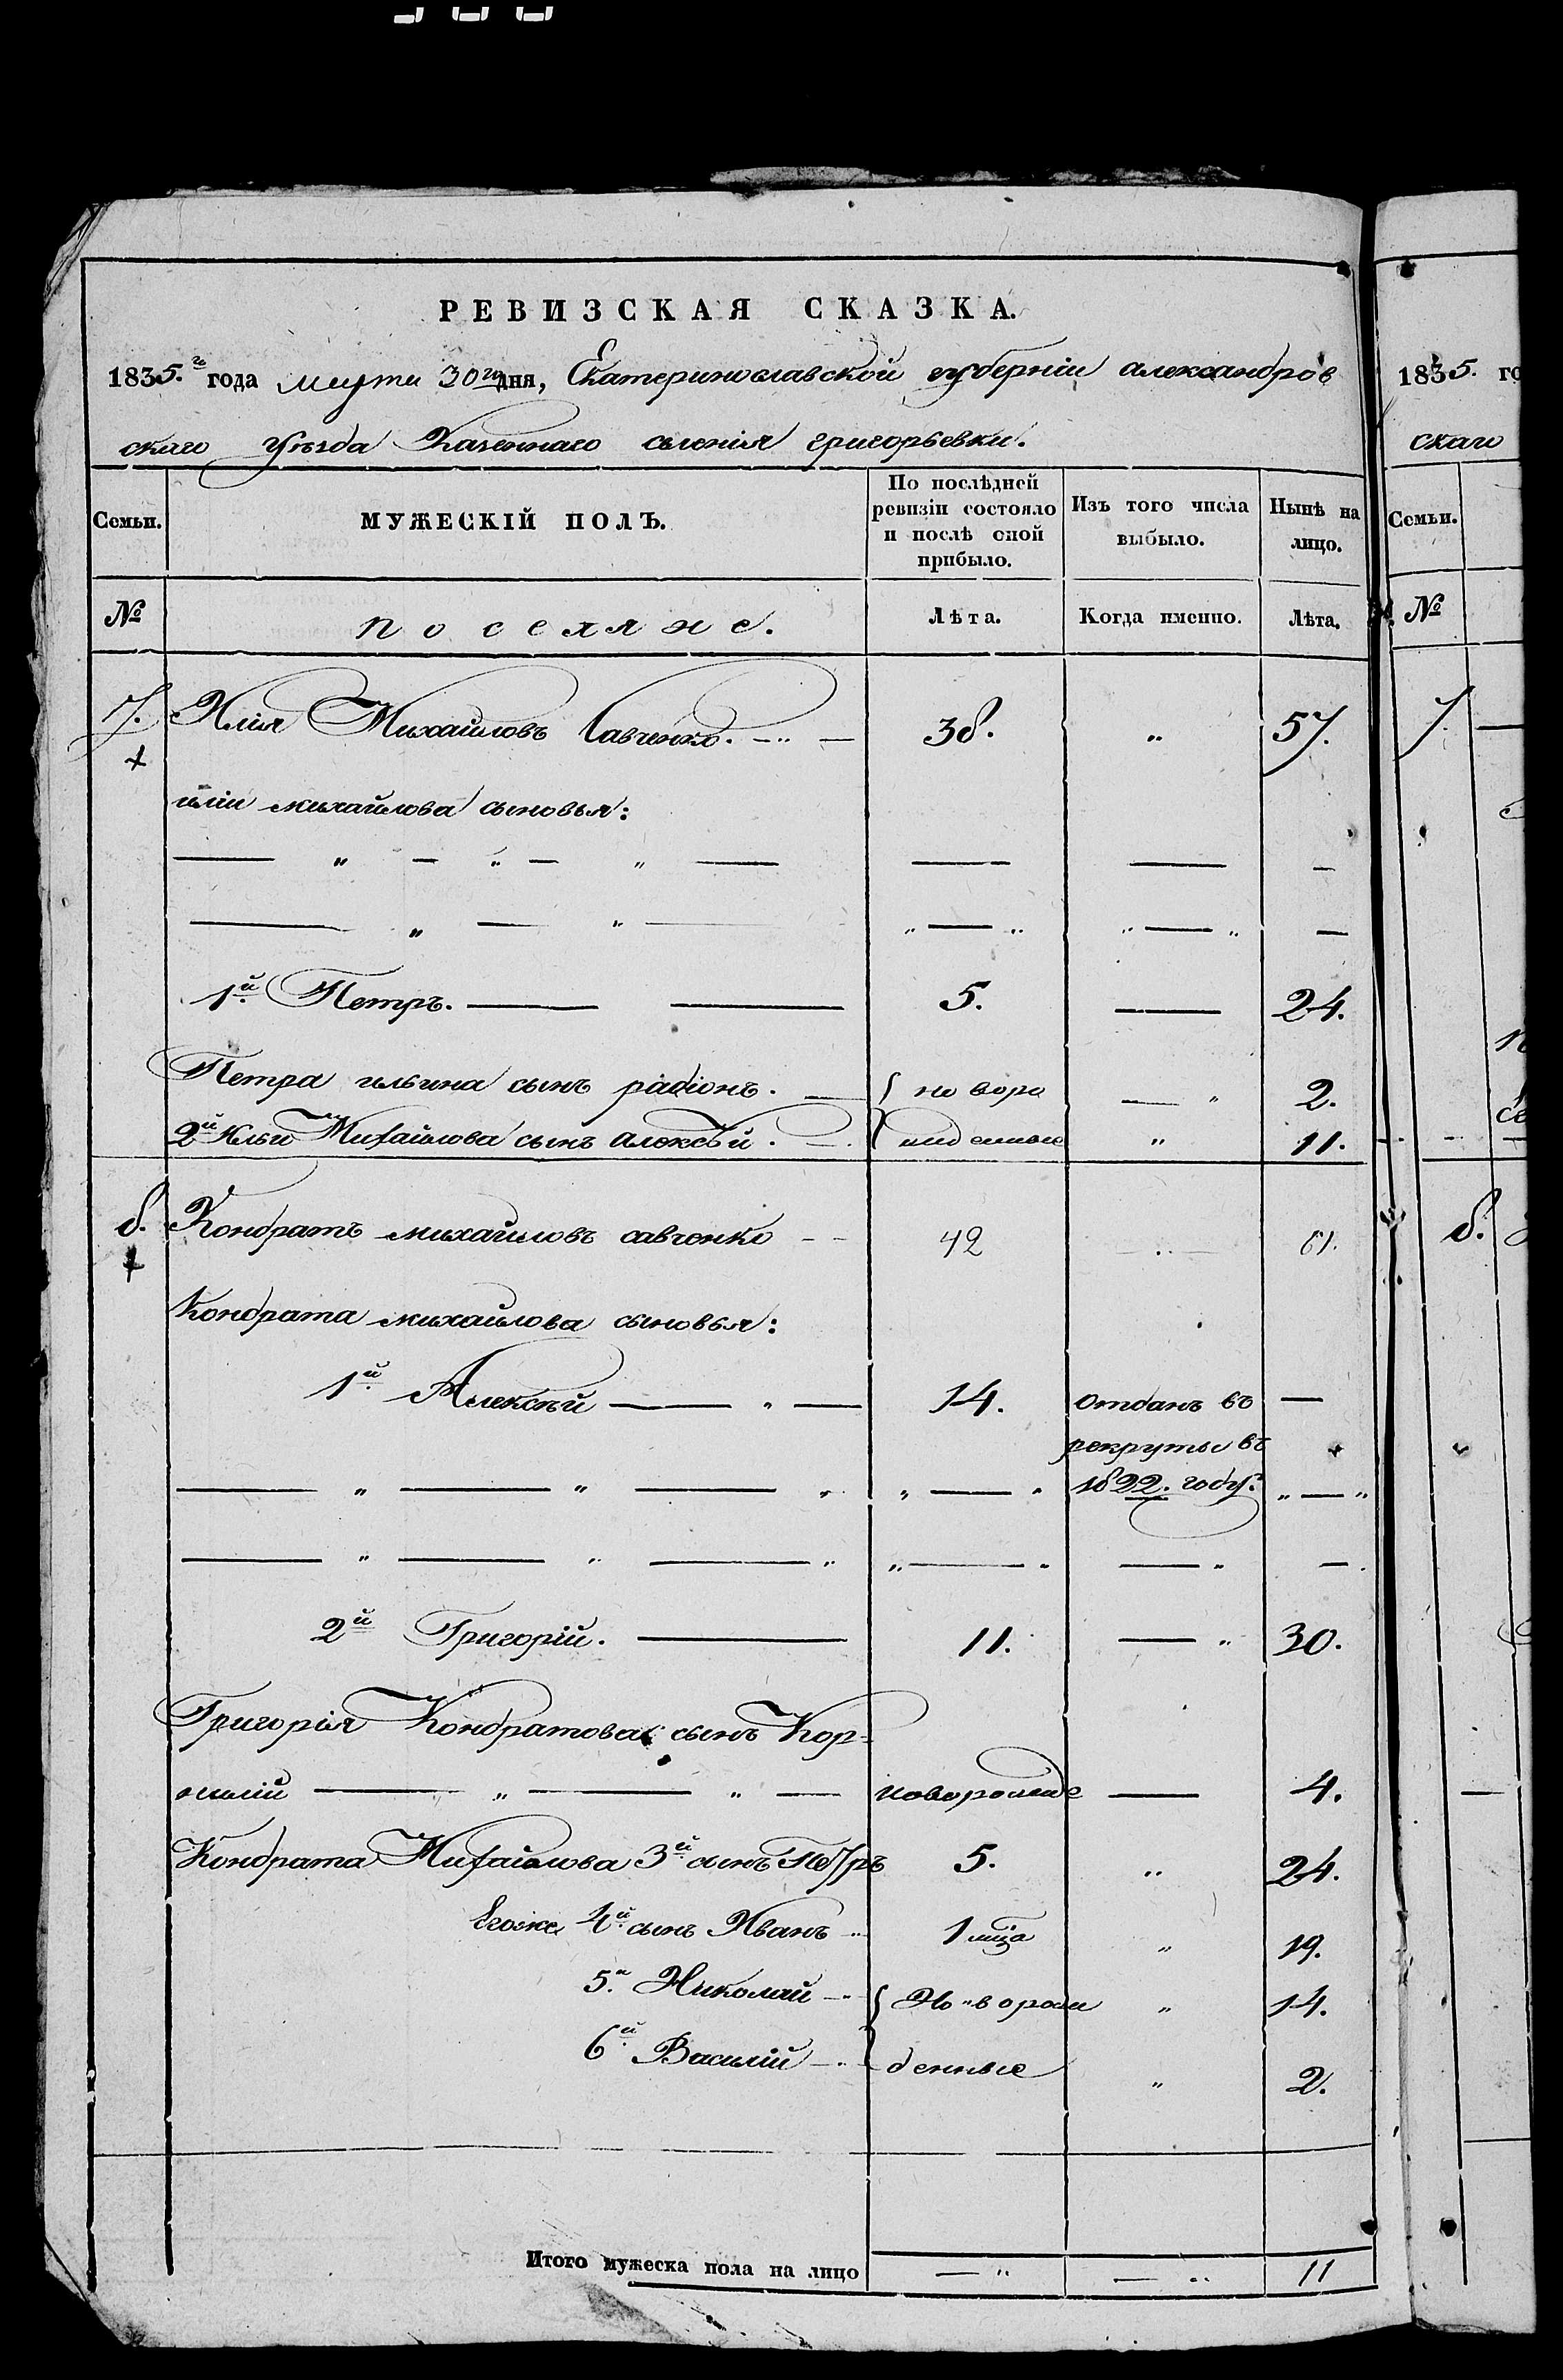 РЕВИЗСКАЯ СКАЗКА.
1835.го года марта 30го дня, Екатеринославской губерніи александров
скаго уѣзда Казеннаго селенія григорьевки.
Семьи.
МУЖЕСКІЙ ПОЛЪ.
По послѣдней ревизіи состояло и послѣ оной прибыло.
Изъ того числа выбыло.
Нынѣ на лицо.
№ поселяне. Лѣта. Когда именно. Лѣта.
7. Илія Михайловъ Савченко. 38. " 57.
иліи михайлова сыновья:
1й Петръ. 5. 24.
Петра ильина сынъ радіонъ. { новоро " 2.
2й Ильи Михайлова сынъ алексѣй. { жденные " 11.
8. Кондратъ михайловъ савченко 42 61.
Кондрата михайлова сыновья:
1й Алексѣй 14. отданъ въ
рекруты въ
1822. году.
2й Григорій. 11. " 30.
Григорія Кондратова сынъ Кор=
нилій новорожде 4.
Кондрата Михайлова 3й сынъ Петръ 5. " 24.
Егоже 4й сынъ Иванъ 1 мца " 19.
5й Николай { Новорож " 14.
6й Василій { денные " 2.
Итого мужеска пола на лицо " " 11
1835. го
скаго
Семьи.
№
7
8.